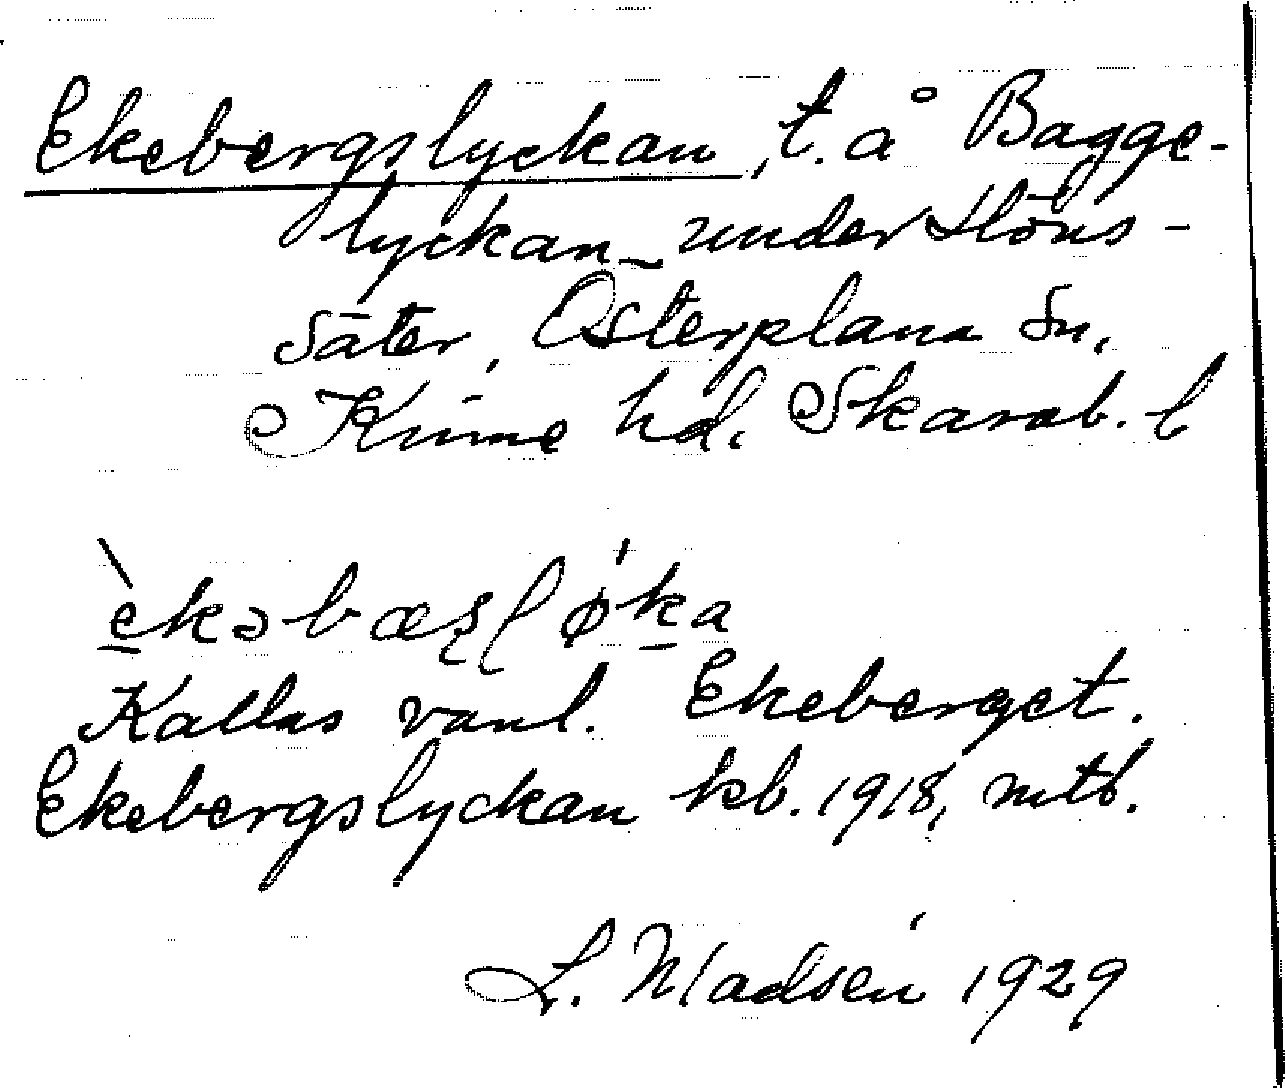 Ekebergslyckan, t. å Bagge-
lyckan under Höns-
säter, Österplana sn,
Kinne hd. Skarab. l
èkəbæʂḷø'ka
Kallas vanl. Ekeberget.
Ekebergslyckan kb. 1918, mtb.
L. Madsén 1929